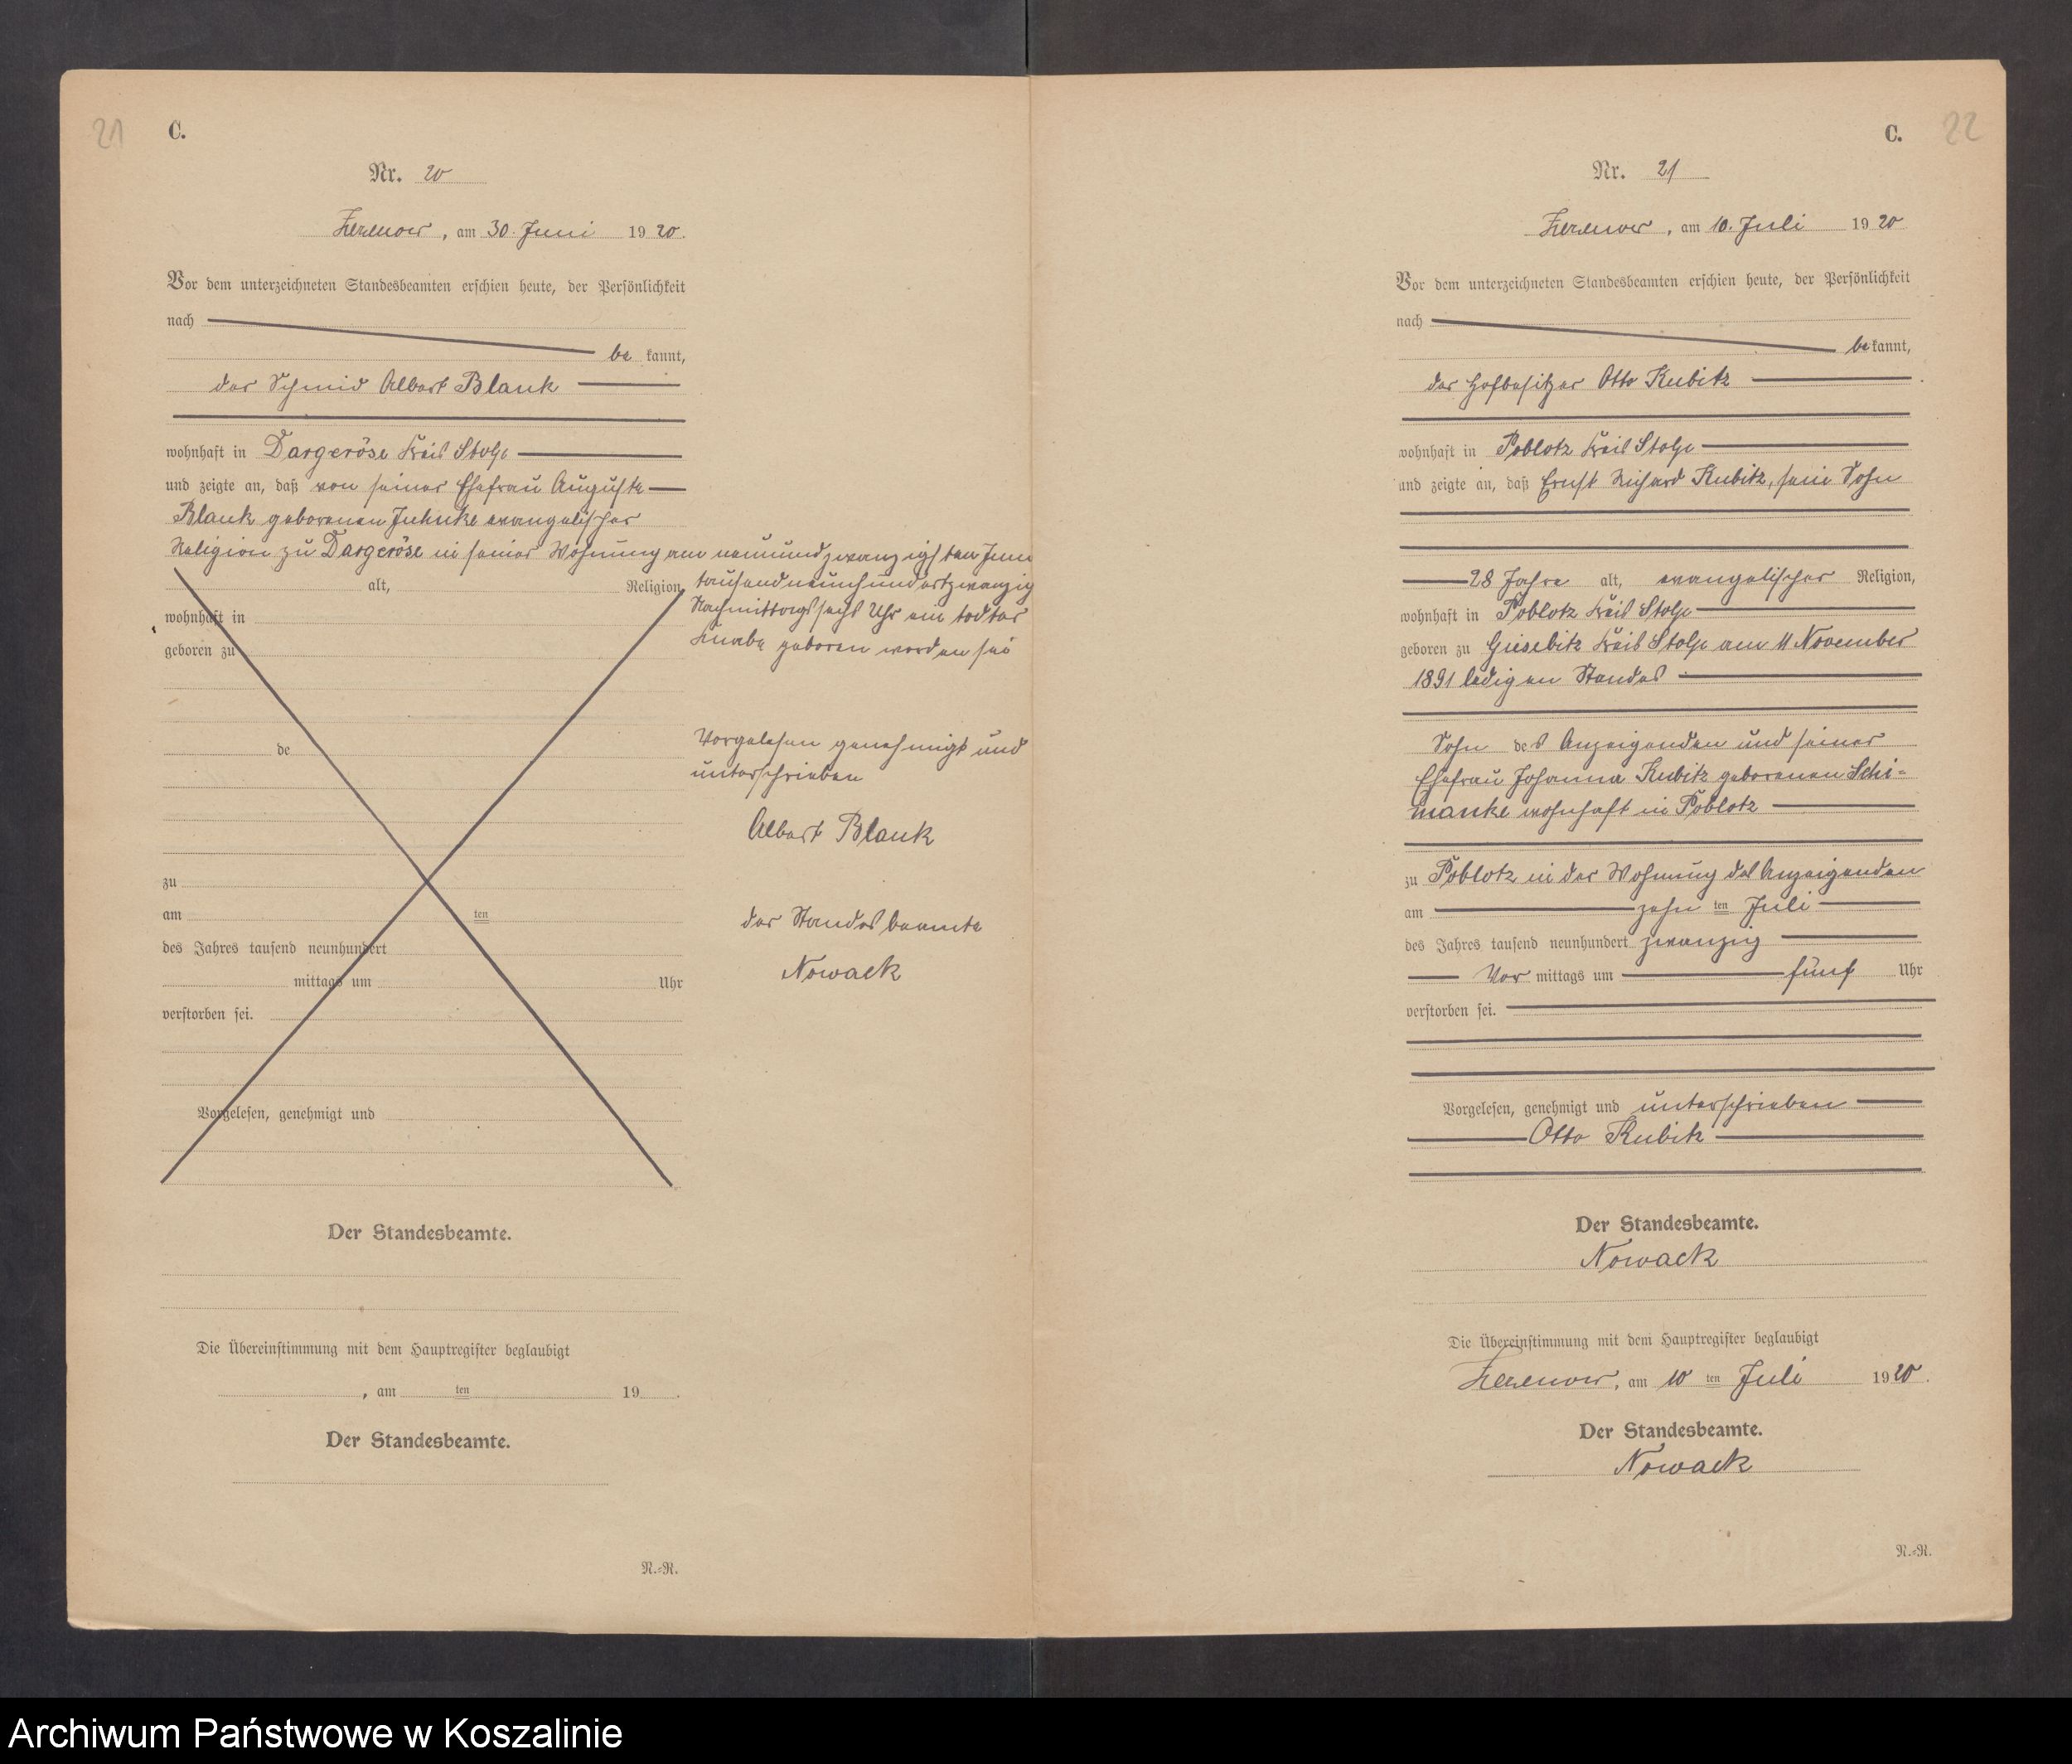 21
C.
Nr. 20
Zezenow, am 30. Juni 1920.
Vor dem unterzeichneten Standesbeamten erschien heute, der Persönlichkeit
nach
be kannt,
der Schmid Albert Blank
wohnhaft in Dargeröse Kreis Stolp
und zeigte an, daß von seiner Ehefrau Auguste
Blank geborenen Juhnke evangelischer
Religion zu Dargeröse in seiner Wohnung am neunundzwanzigsten Juni
alt, Religion, tausendneunhundertzwanzig
wohnhaft in Nachmittags sechs Uhr ein todter
geboren zu Knabe geboren worden sei
de
Vorgelesen genehmigt und
unterschrieben
Albert Blank
zu
am ten der Standesbeamte
des Jahres tausend neunhundert
Nowack
mittags um Uhr
verstorben sei.
Vorgelesen, genehmigt und
Der Standesbeamte.
Die Übereinstimmung mit dem Hauptregister beglaubigt
, am ten 19 .
Der Standesbeamte.
N.=R.
C. 22
Nr. 21
Zezenow, am 10. Juli 1920
Vor dem unterzeichneten Standesbeamten erschien heute, der Persönlichkeit
nach
be kannt,
der Hofbesitzer Otto Kubitz
wohnhaft in Poblotz Kreis Stolp
und zeigte an, daß Ernst Richard Kubitz, sein Sohn
28 Jahre alt, evangelischer Religion,
wohnhaft in Poblotz Kreis Stolp
geboren zu Giesebitz Kreis Stolp am 11 November
1891 ledigen Standes
Sohn des Anzeigenden und seiner
Ehefrau Johanna Kubitz geborenen Schi=
manke wohnhaft in Poblotz
zu Poblotz in der Wohnung des Anzeigenden
am zehn ten Juli
des Jahres tausend neunhundert zwanzig
Vor mittags um fünf Uhr
verstorben sei.
Vorgelesen, genehmigt und unterschrieben
Otto Kubitz
Der Standesbeamte.
Nowack
Die Übereinstimmung mit dem Hauptregister beglaubigt
Zezenow, am 10 ten Juli 1920.
Der Standesbeamte.
Nowack
N.=R.
Archiwum Państwowe w Koszalinie